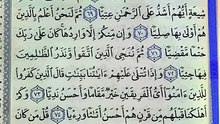 شِيعَةٍ أَيُّهُمْ أَشَدُّ عَلَى ٱلرَّحْمَٰنِ عِتِيًّا ٦٩ ثُمَّ لَنَحْنُ أَعْلَمُ بِٱلَّذِينَ
هُمْ أَوْلَىٰ بِهَا صِلِيًّا ٧٠ وَإِن مِّنكُمْ إِلَّا وَارِدُهَا كَانَ عَلَىٰ رَبِّكَ
حَتْمًا مَّقْضِيًّا ٧١ ثُمَّ نُنَجِّي ٱلَّذِينَ ٱتَّقَوا۟ وَّنَذَرُ ٱلظَّٰلِمِينَ
فِيهَا جِثِيًّا ٧٢ وَإِذَا تُتْلَىٰ عَلَيْهِمْ ءَايَٰتُنَا بَيِّنَٰتٍ قَالَ ٱلَّذِينَ كَفَرُوا۟
لِلَّذِينَ ءَامَنُوٓا۟ أَيُّ ٱلْفَرِيقَيْنِ خَيْرٌ مَّقَامًا وَأَحْسَنُ نَدِيًّا ٧٣ وَكَمْ
أَهْلَكْنَا قَبْلَهُم مِّن قَرْنٍ هُمْ أَحْسَنُ أَثَٰثًا وَرِءْيًا ٧٤ قُلْ مَن كَانَ